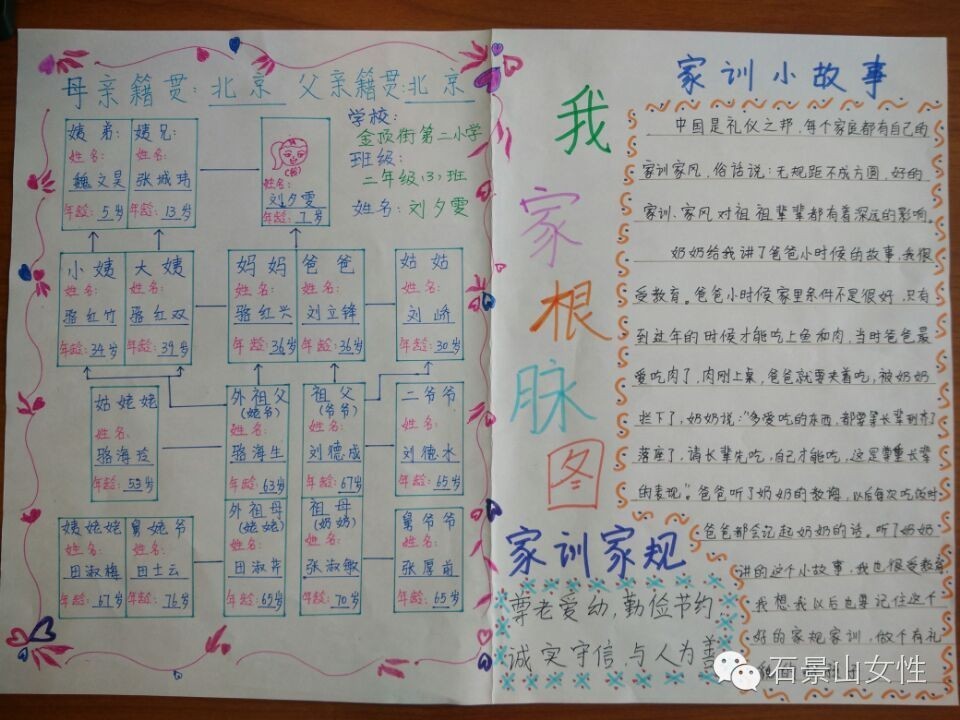 母亲籍贯:北京 父亲籍贯:北京
学校:
金顶街第二小学
班级:
二年级(3)班
姓名:刘夕雯
姨弟: 姨兄:
姓名: 姓名:
魏文昊 张城玮
年龄:5岁 年龄:13岁
(我)
姓名:
刘夕雯
年龄:7岁
小姨 大姨
姓名: 姓名:
骆红竹 骆红双
年龄:34岁 年龄:39岁
妈妈 爸爸
姓名: 姓名:
骆红兴 刘立锋
年龄:36岁 年龄:36岁
姑姑
姓名:
刘娇
年龄:30岁
姑姥姥
姓名:
骆海玲
年龄:53岁
外祖父 祖父
(姥爷) (爷爷)
姓名: 姓名:
骆海生 刘德成
年龄:63岁 年龄:67岁
二爷爷
姓名:
刘德水
年龄:65岁
姨姥姥 舅姥爷
姓名: 姓名:
田淑梅 田士云
年龄:67岁 年龄:76岁
外祖母 祖母
(姥姥) (奶奶)
姓名: 姓名:
田淑芹 张淑敏
年龄:65岁 年龄:70岁
舅爷爷
姓名:
张厚前
年龄:65岁
我
家
根
脉
图
家训家规
尊老爱幼,勤俭节约,
诚实守信,与人为善
家训小故事
中国是礼仪之邦,每个家庭都有自己的
家训家风,俗话说:无规距不成方圆,好的
家训、家风对祖祖辈辈都有着深远的影响。
奶奶给我讲了爸爸小时候的故事,我很
受教育。爸爸小时候家里条件不是很好,只有
到过年的时候才能吃上鱼和肉,当时爸爸最
爱吃肉了,肉刚上桌,爸爸就要夹着吃,被奶奶
拦下了,奶奶说:“多爱吃的东西,都要等长辈到齐了
落座了,请长辈先吃,自己才能吃,这是尊重长辈
的表现”。爸爸听了奶奶的教诲,以后每次吃饭时
爸爸都会记起奶奶的话。听了奶奶
讲的这个小故事,我也很受教育
我想我以后也要记住这个
好的家规家训,做个有礼
石景山女性